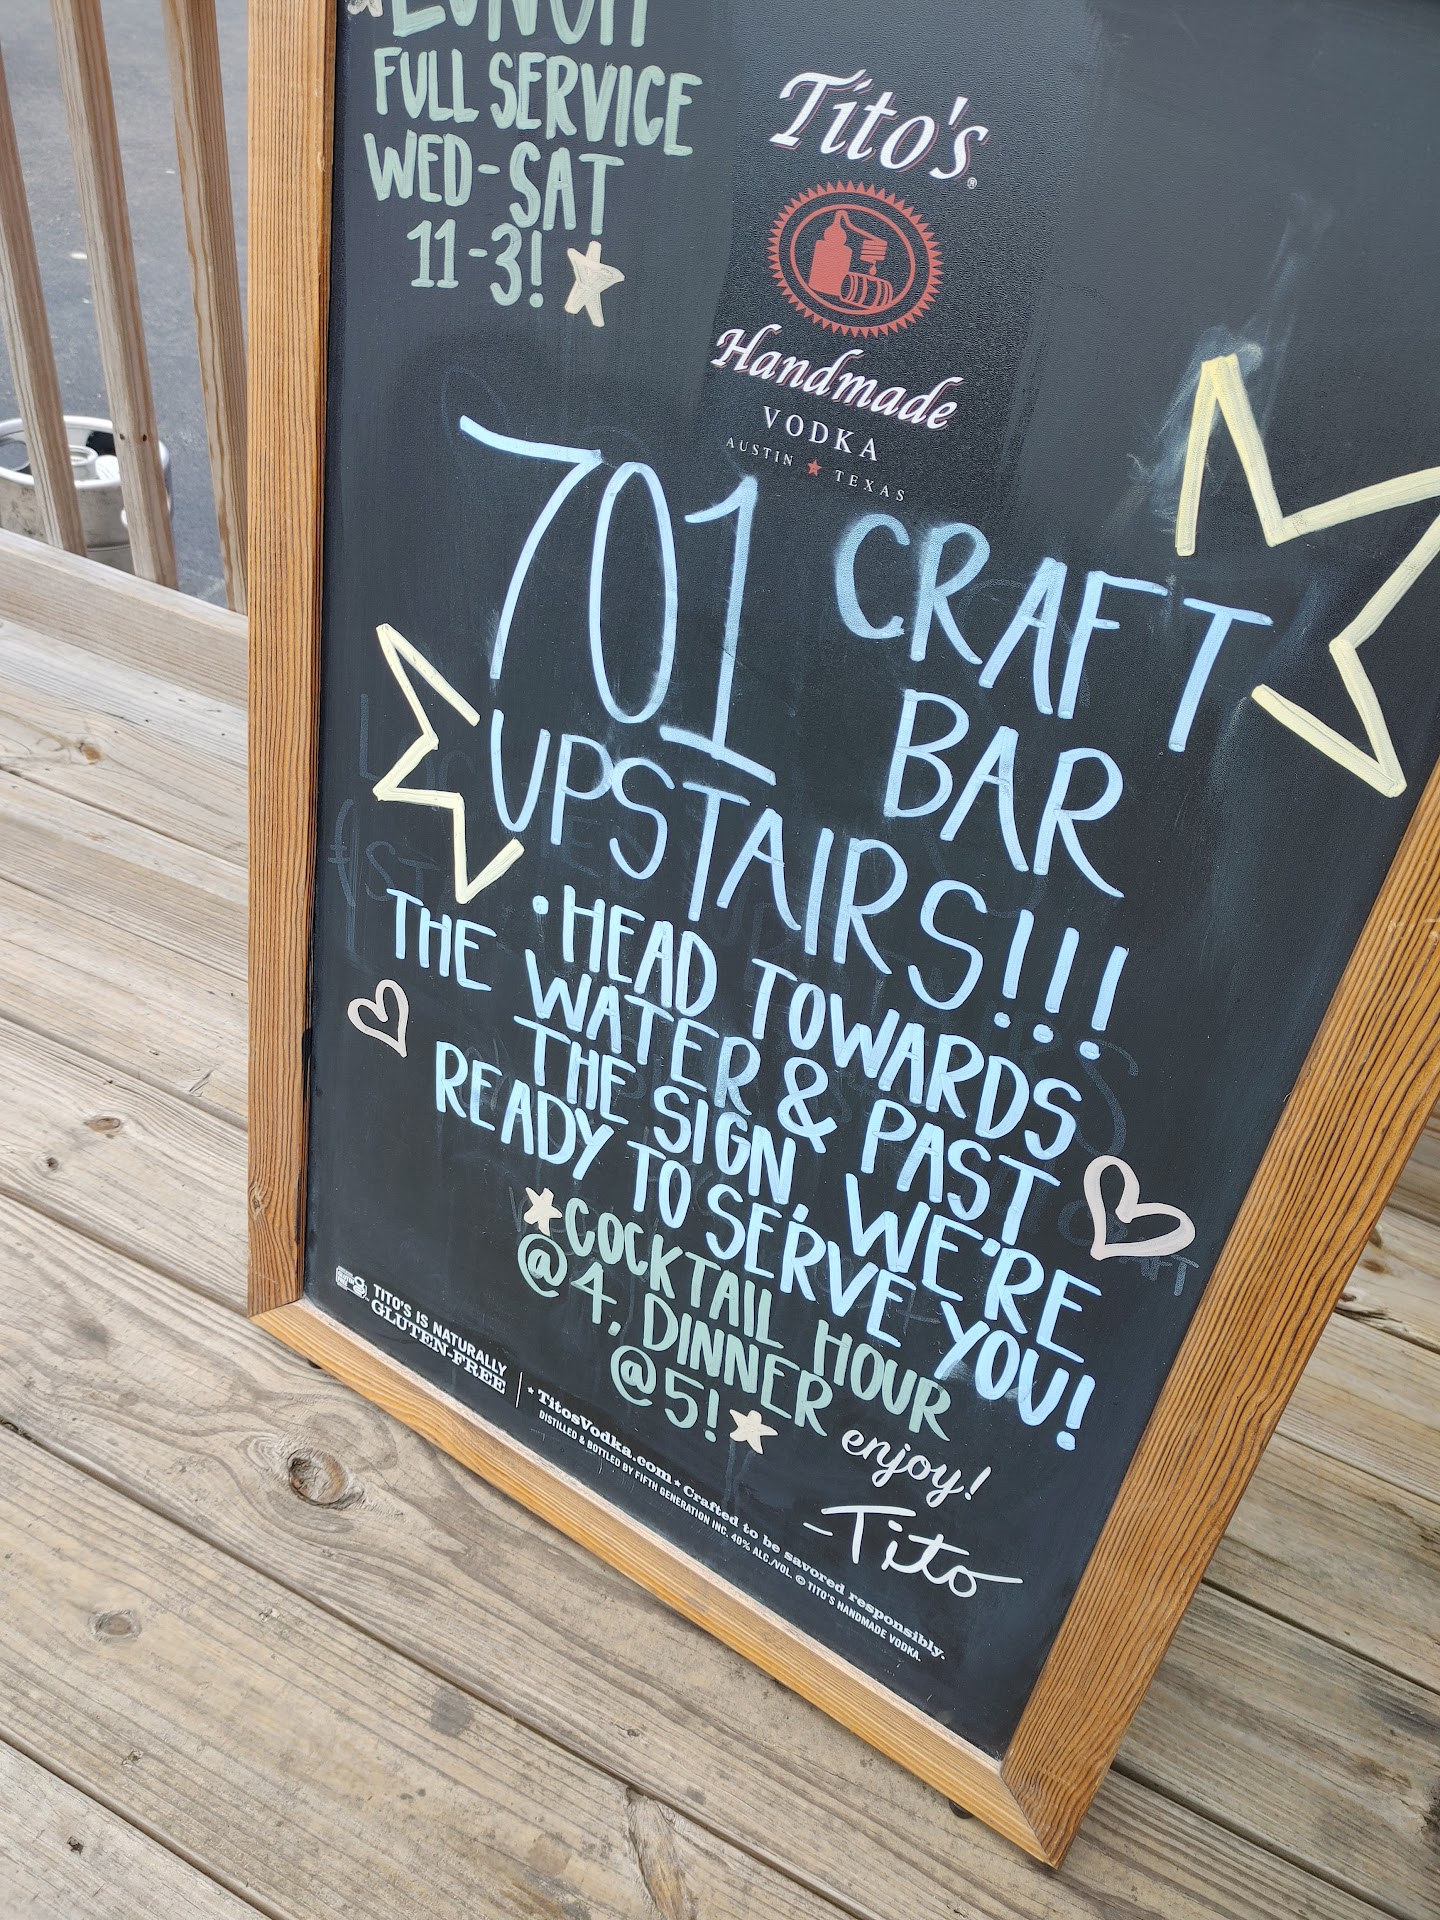 LUNCH
FULL SERVICE
WED-SAT
11-3!
Tito's®
Handmade
VODKA
AUSTIN ★ TEXAS
701 CRAFT
BAR
UPSTAIRS!!!
· HEAD TOWARDS
THE WATER & PAST
THE SIGN, WE'RE
READY TO SERVE YOU!
★COCKTAIL HOUR
@4, DINNER
@5!★
enjoy!
-Tito
TITO'S IS NATURALLY
GLUTEN-FREE
★ TitosVodka.com ★ Crafted to be savored responsibly.
DISTILLED & BOTTLED BY FIFTH GENERATION INC. 40% ALC./VOL. © TITO'S HANDMADE VODKA.